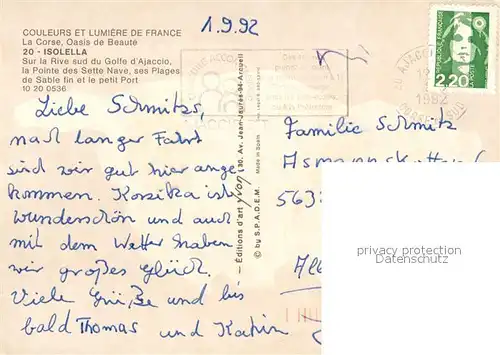 COULEURS ET LUMIÈRE DE FRANCE
La Corse, Oasis de Beauté
20 - ISOLELLA
Sur la Rive sud du Golfe d'Ajaccio,
la Pointe des Sette Nave, ses Plages
de Sable fin et le petit Port
10 20 0536
1.9.92
Liebe Schmitzs,
nach langer Fahrt
sind wir gut hier ange
kommen. Korsika ist
wunderschön und auch
mit dem Wetter haben
wir großes Glück.
Viele Grüße und bis
bald Thomas und Katrin
Editions d'art yvon 130, Av. Jean-Jaurès-94-Arcueil
© by S.P.A.D.E.M. Made in Spain
REPUBLIQUE FRANÇAISE
2,20
LA POSTE
1992
Familie Schmitz
563
privacy protection
Datenschutz